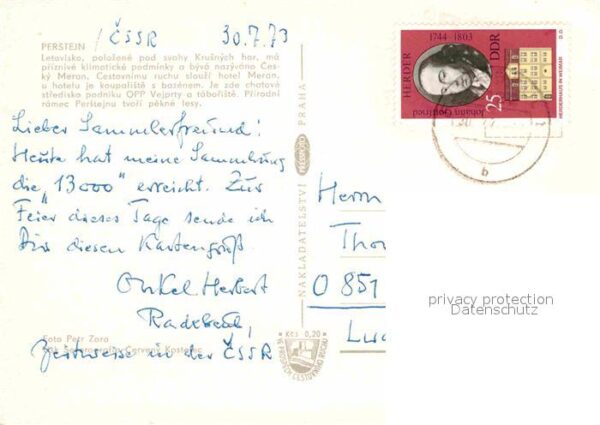 PERSTEJN
/ČSSR 30.7.73
Letovisko, položené pod svahy Krušných hor, má
příznivé klimatické podmínky a bývá nazýváno Čes-
ký Meran. Cestovnímu ruchu slouží hotel Meran,
u hotelu je koupaliště s bazénem. Je zde chatové
středisko podniku OPP Vejprty a tábořiště. Přírodní
rámec Perštejnu tvoří pěkné lesy.
Lieber Sammlerfreund!
Heute hat meine Sammlung
die "13000" erreicht. Zur
Feier dieses Tage sende ich
Dir diesen Kartengruß.
Onkel Herbert
Radebeul,
zeitweise in der ČSSR
Foto Petr Zora
Červený Kostelec
NAKLADATELSTVÍ
PRESSFOTO
PRAHA
Kčs 0,20
HERDER
1744-1803
Johann Gottfried
DDR
25
HERDERHAUS IN WEIMAR
b
Herrn
Tho
0851
Luc
privacy protection
Datenschutz